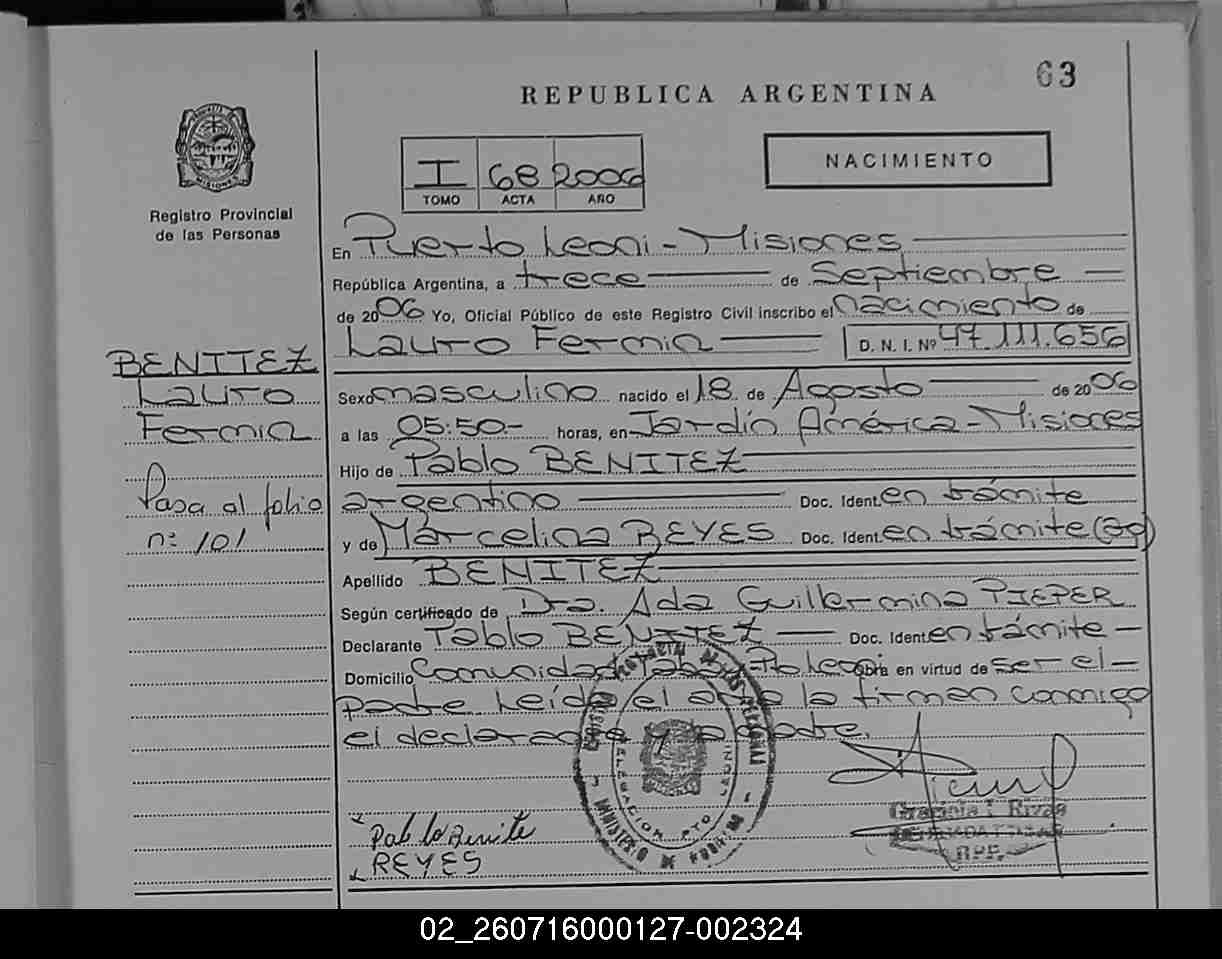 63
REPUBLICA ARGENTINA
NACIMIENTO
I 68 2006
TOMO ACTA AÑO
MISIONES
Registro Provincial
de las Personas
BENITEZ
Lauro
Fermin
Pasa al folio
nº 101
En Puerto Leoni - Misiones
República Argentina, a trece de Septiembre
de 2006 Yo, Oficial Público de este Registro Civil inscribo el nacimiento de
Lauro Fermin D. N. I. Nº 47.111.656
Sexo masculino nacido el 18 de Agosto de 2006
a las 05:50.- horas, en Jardín América - Misiones
Hijo de Pablo BENITEZ
argentino Doc. Ident. en trámite
y de Marcelina REYES Doc. Ident. en trámite
Apellido BENITEZ
Según certificado de Dra. Ada Guillermina PIEPER
Declarante Pablo BENITEZ Doc. Ident. en trámite -
Domicilio Comunidad Obra en virtud de ser el -
padre Leída el acta la firman conmigo
el declarante y
DELEGACION PTO LEONI
MINISTERIO DE GOBIERNO
Pablo Benite
REYES
Graciela I. Rivas
RPP.
02_260716000127-002324